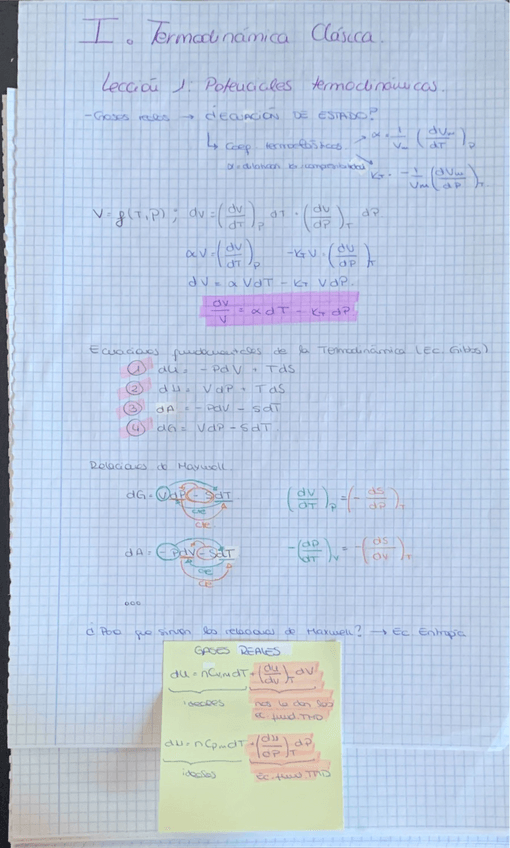 I. Termodinámica Clásica.
Lección 1: Potenciales termodinámicos.
- Gases reales → ¿ECUACIÓN DE ESTADO?
↳ Coef termoelásticos → α = 1/Vm (dVm/dT)P
KT = - 1/Vm (dVm/dP)T
V = f(T,P) ; dV = (dV/dT)P dT + (dV/dP)T dP
αV = (dV/dT)P - KT V = (dV/dP)T
dV = αVdT - KT VdP.
dV/V = αdT - KT dP
Ecuaciones fundamentales de la Termodinámica (Ec. Gibbs)
① dU = -PdV + TdS
② dH = VdP + TdS
③ dA = -PdV - SdT
④ dG = VdP - SdT
Relaciones de Maxwell
dG = VdP - SdT (dV/dT)P = (- dS/dP)T
cte
cte
dA = -PdV - SdT -(dP/dT)V = -(dS/dV)T
cte
cte
...
¿Para que sirven las relaciones de Maxwell? → Ec. Entropía
GASES REALES
dU = nCvm dT + (dU/dV)T dV
ideales nos la dan las
ec. fund. TMD
dH = nCpm dT + (dH/dP)T dP
ideales Ec. fund. TMD